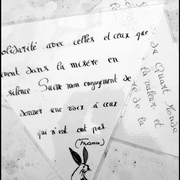 solidarité avec celles et ceux que
vivent dans la misère en
silence Suite mon engagement de
donner une voix à ceux
qui n'est ont pas
Quart Monde
la valeur et
de la